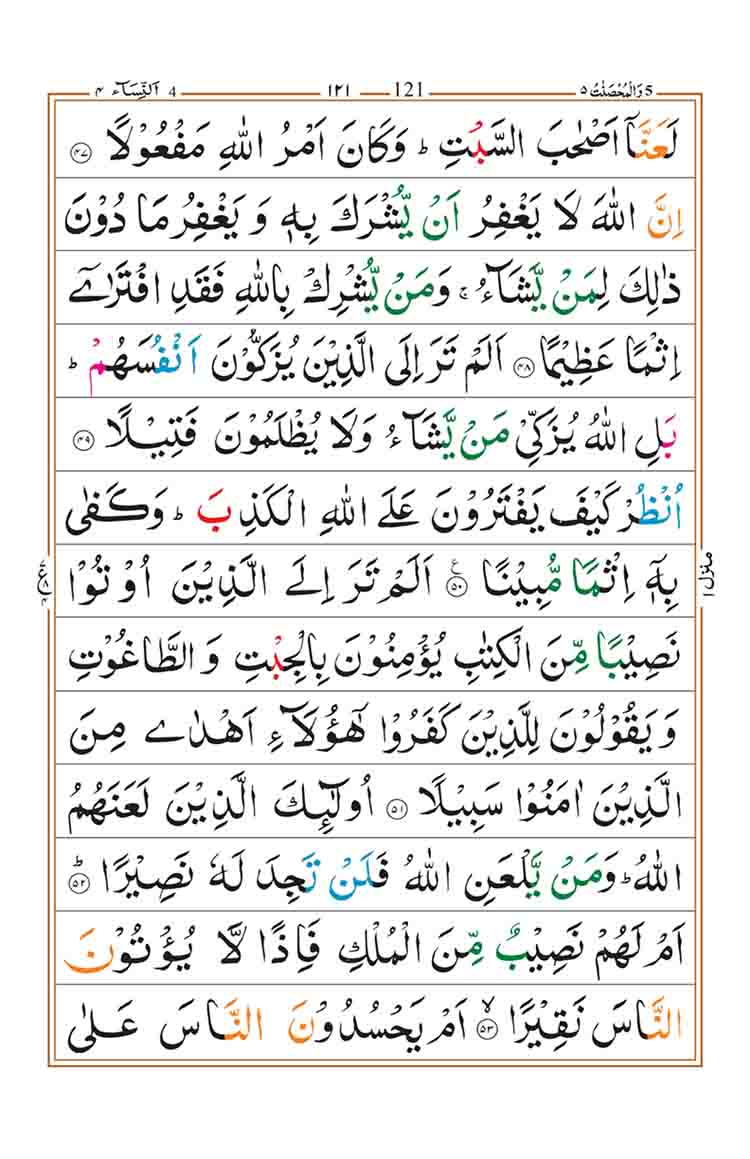 5 وَالْمُحْصَنٰتُ ۵ 121 ١٢١ 4 اَلنِّسَآء ۴
لَعَنَّاۤ اَصْحٰبَ السَّبْتِ ؕ وَكَانَ اَمْرُ اللّٰهِ مَفْعُوْلًا ﴿۴۷﴾
اِنَّ اللّٰهَ لَا يَغْفِرُ اَنْ يُّشْرَكَ بِهٖ وَ يَغْفِرُ مَا دُوْنَ
ذٰلِكَ لِمَنْ يَّشَآءُ ۚ وَمَنْ يُّشْرِكْ بِاللّٰهِ فَقَدِ افْتَرٰۤى
اِثْمًا عَظِيْمًا ﴿۴۸﴾ اَلَمْ تَرَ اِلَى الَّذِيْنَ يُزَكُّوْنَ اَنْفُسَهُمْ ؕ
بَلِ اللّٰهُ يُزَكِّىْ مَنْ يَّشَآءُ وَلَا يُظْلَمُوْنَ فَتِيْلًا ﴿۴۹﴾
اُنْظُرْ كَيْفَ يَفْتَرُوْنَ عَلَى اللّٰهِ الْكَذِبَ ؕ وَكَفٰى
بِهٖۤ اِثْمًا مُّبِيْنًا ﴿۵۰﴾ اَلَمْ تَرَ اِلَى الَّذِيْنَ اُوْتُوْا
نَصِيْبًا مِّنَ الْكِتٰبِ يُؤْمِنُوْنَ بِالْجِبْتِ وَ الطَّاغُوْتِ
وَ يَقُوْلُوْنَ لِلَّذِيْنَ كَفَرُوْا هٰٓؤُلَآءِ اَهْدٰى مِنَ
الَّذِيْنَ اٰمَنُوْا سَبِيْلًا ﴿۵۱﴾ اُولٰٓئِكَ الَّذِيْنَ لَعَنَهُمُ
اللّٰهُ ؕ وَمَنْ يَّلْعَنِ اللّٰهُ فَلَنْ تَجِدَ لَهٗ نَصِيْرًا ؕ ﴿۵۲﴾
اَمْ لَهُمْ نَصِيْبٌ مِّنَ الْمُلْكِ فَاِذًا لَّا يُؤْتُوْنَ
النَّاسَ نَقِيْرًا ۙ ﴿۵۳﴾ اَمْ يَحْسُدُوْنَ النَّاسَ عَلٰى
منزل ١